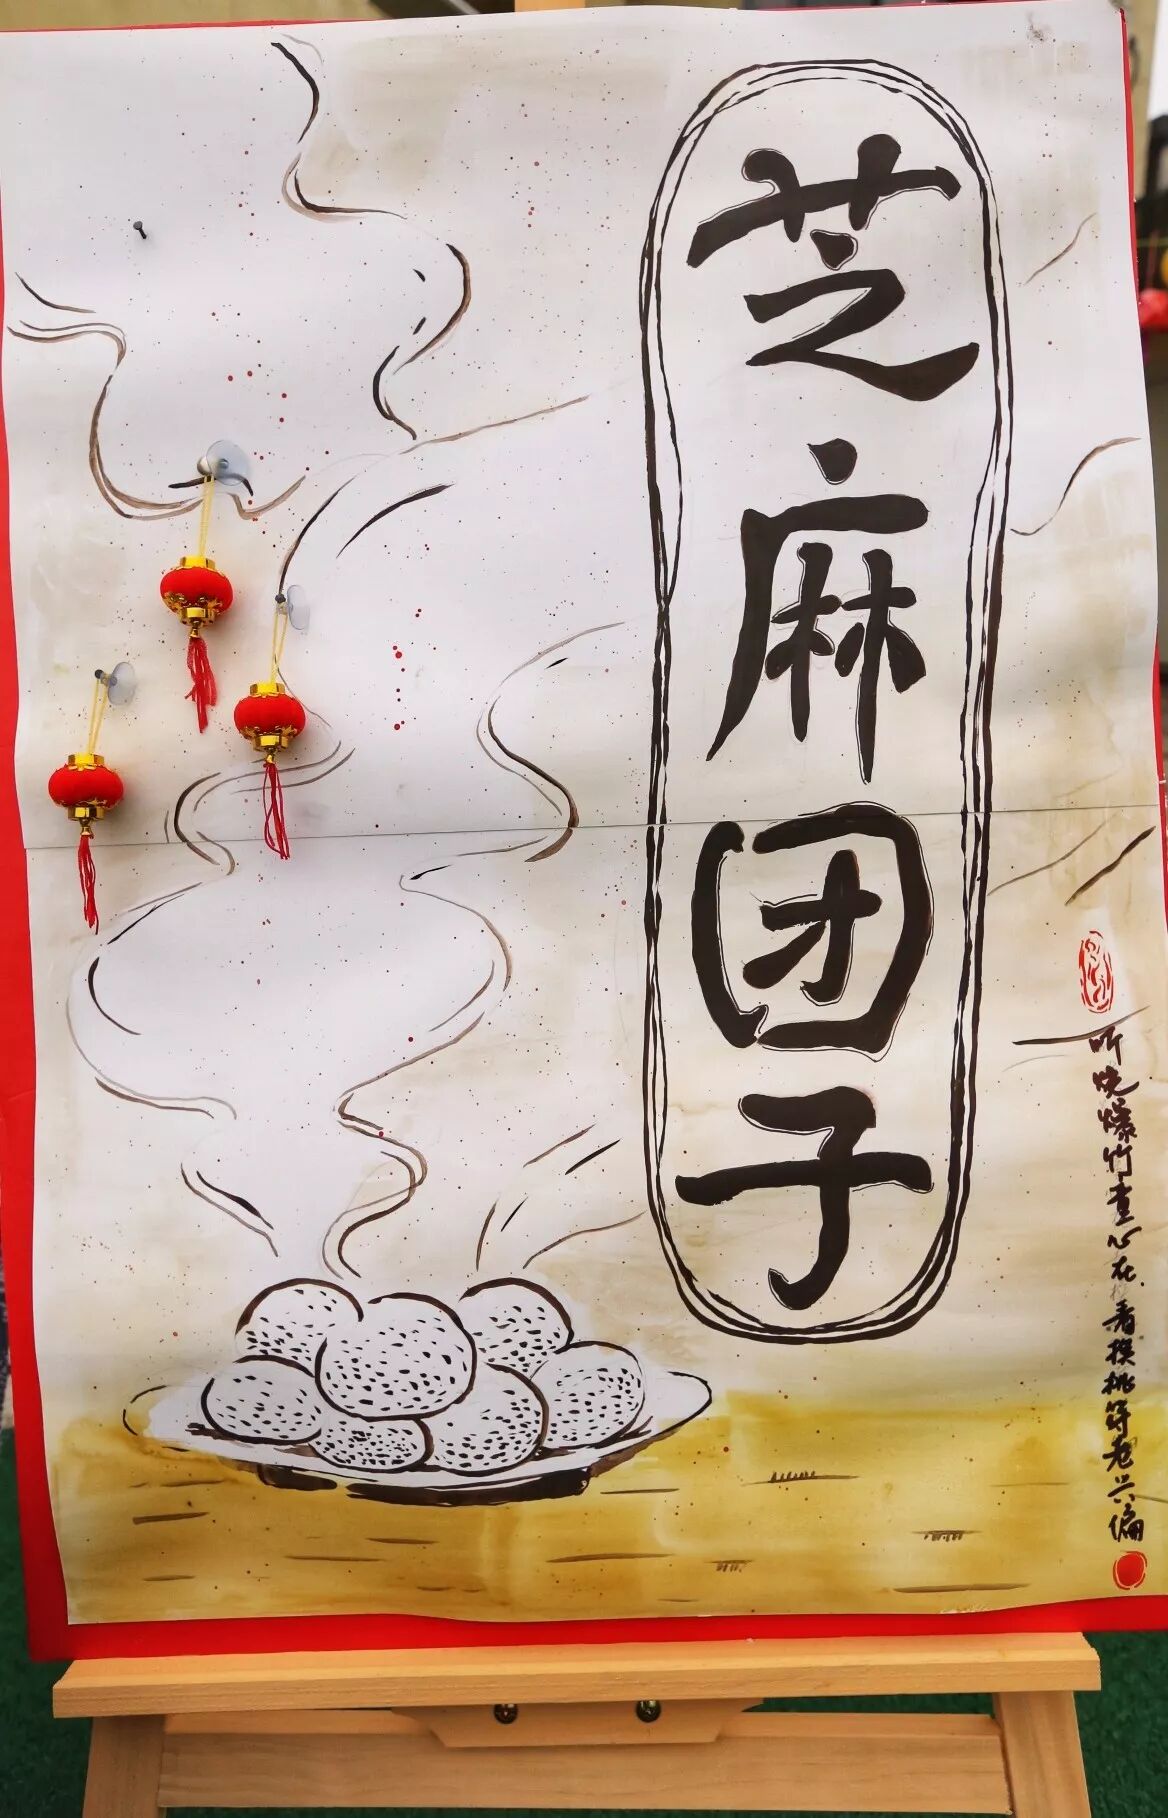 芝麻团子
听烧爆竹童心在看换桃符老兴偏